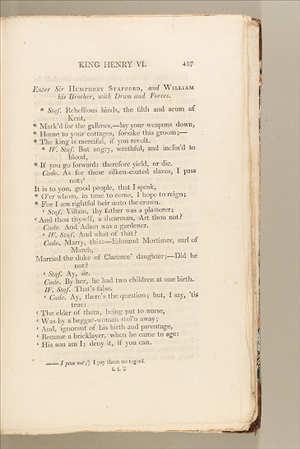 KING HENRY VI. 457
Enter Sir HUMPHREY STAFFORD, and WILLIAM
his Brother, with Drum and Forces.
* Staf. Rebellious hinds, the filth and scum of
Kent,
* Mark'd for the gallows,—lay your weapons down,
* Home to your cottages, forsake this groom;—
* The king is merciful, if you revolt.
* W. Staf. But angry, wrathful, and inclin'd to
blood,
* If you go forward: therefore yield, or die.
Cade. As for these silken-coated slaves, I pass
not;
It is to you, good people, that I speak,
* O'er whom, in time to come, I hope to reign;
* For I am rightful heir unto the crown.
' Staf. Villain, thy father was a plasterer;
' And thou thyself, a shearman, Art thou not?
Cade. And Adam was a gardener.
' W. Staf. And what of that?
Cade. Marry, this:—Edmund Mortimer, earl of
March,
Married the duke of Clarence' daughter;—Did he
not?
' Staf. Ay, sir.
Cade. By her, he had two children at one birth.
W. Staf. That's false.
' Cade. Ay, there's the question; but, I say, 'tis
true:
' The elder of them, being put to nurse,
' Was by a beggar-woman stol'n away;
' And, ignorant of his birth and parentage,
' Became a bricklayer, when he came to age:
' His son am I; deny it, if you can.
—— I pass not;] I pay them no regard.
L L 2